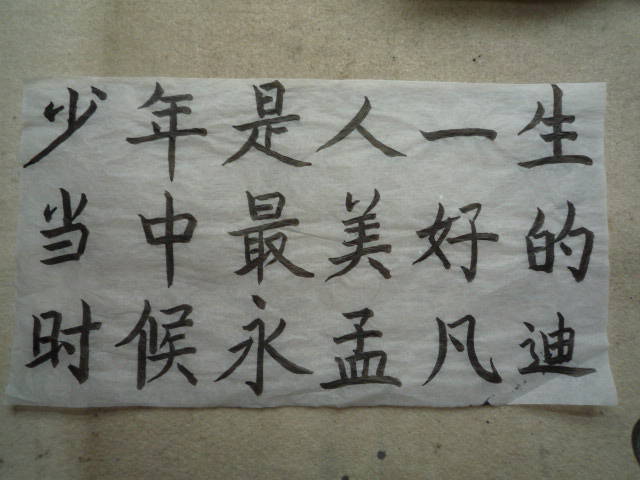 少年是人一生
当中最美好的
时候永孟凡迪